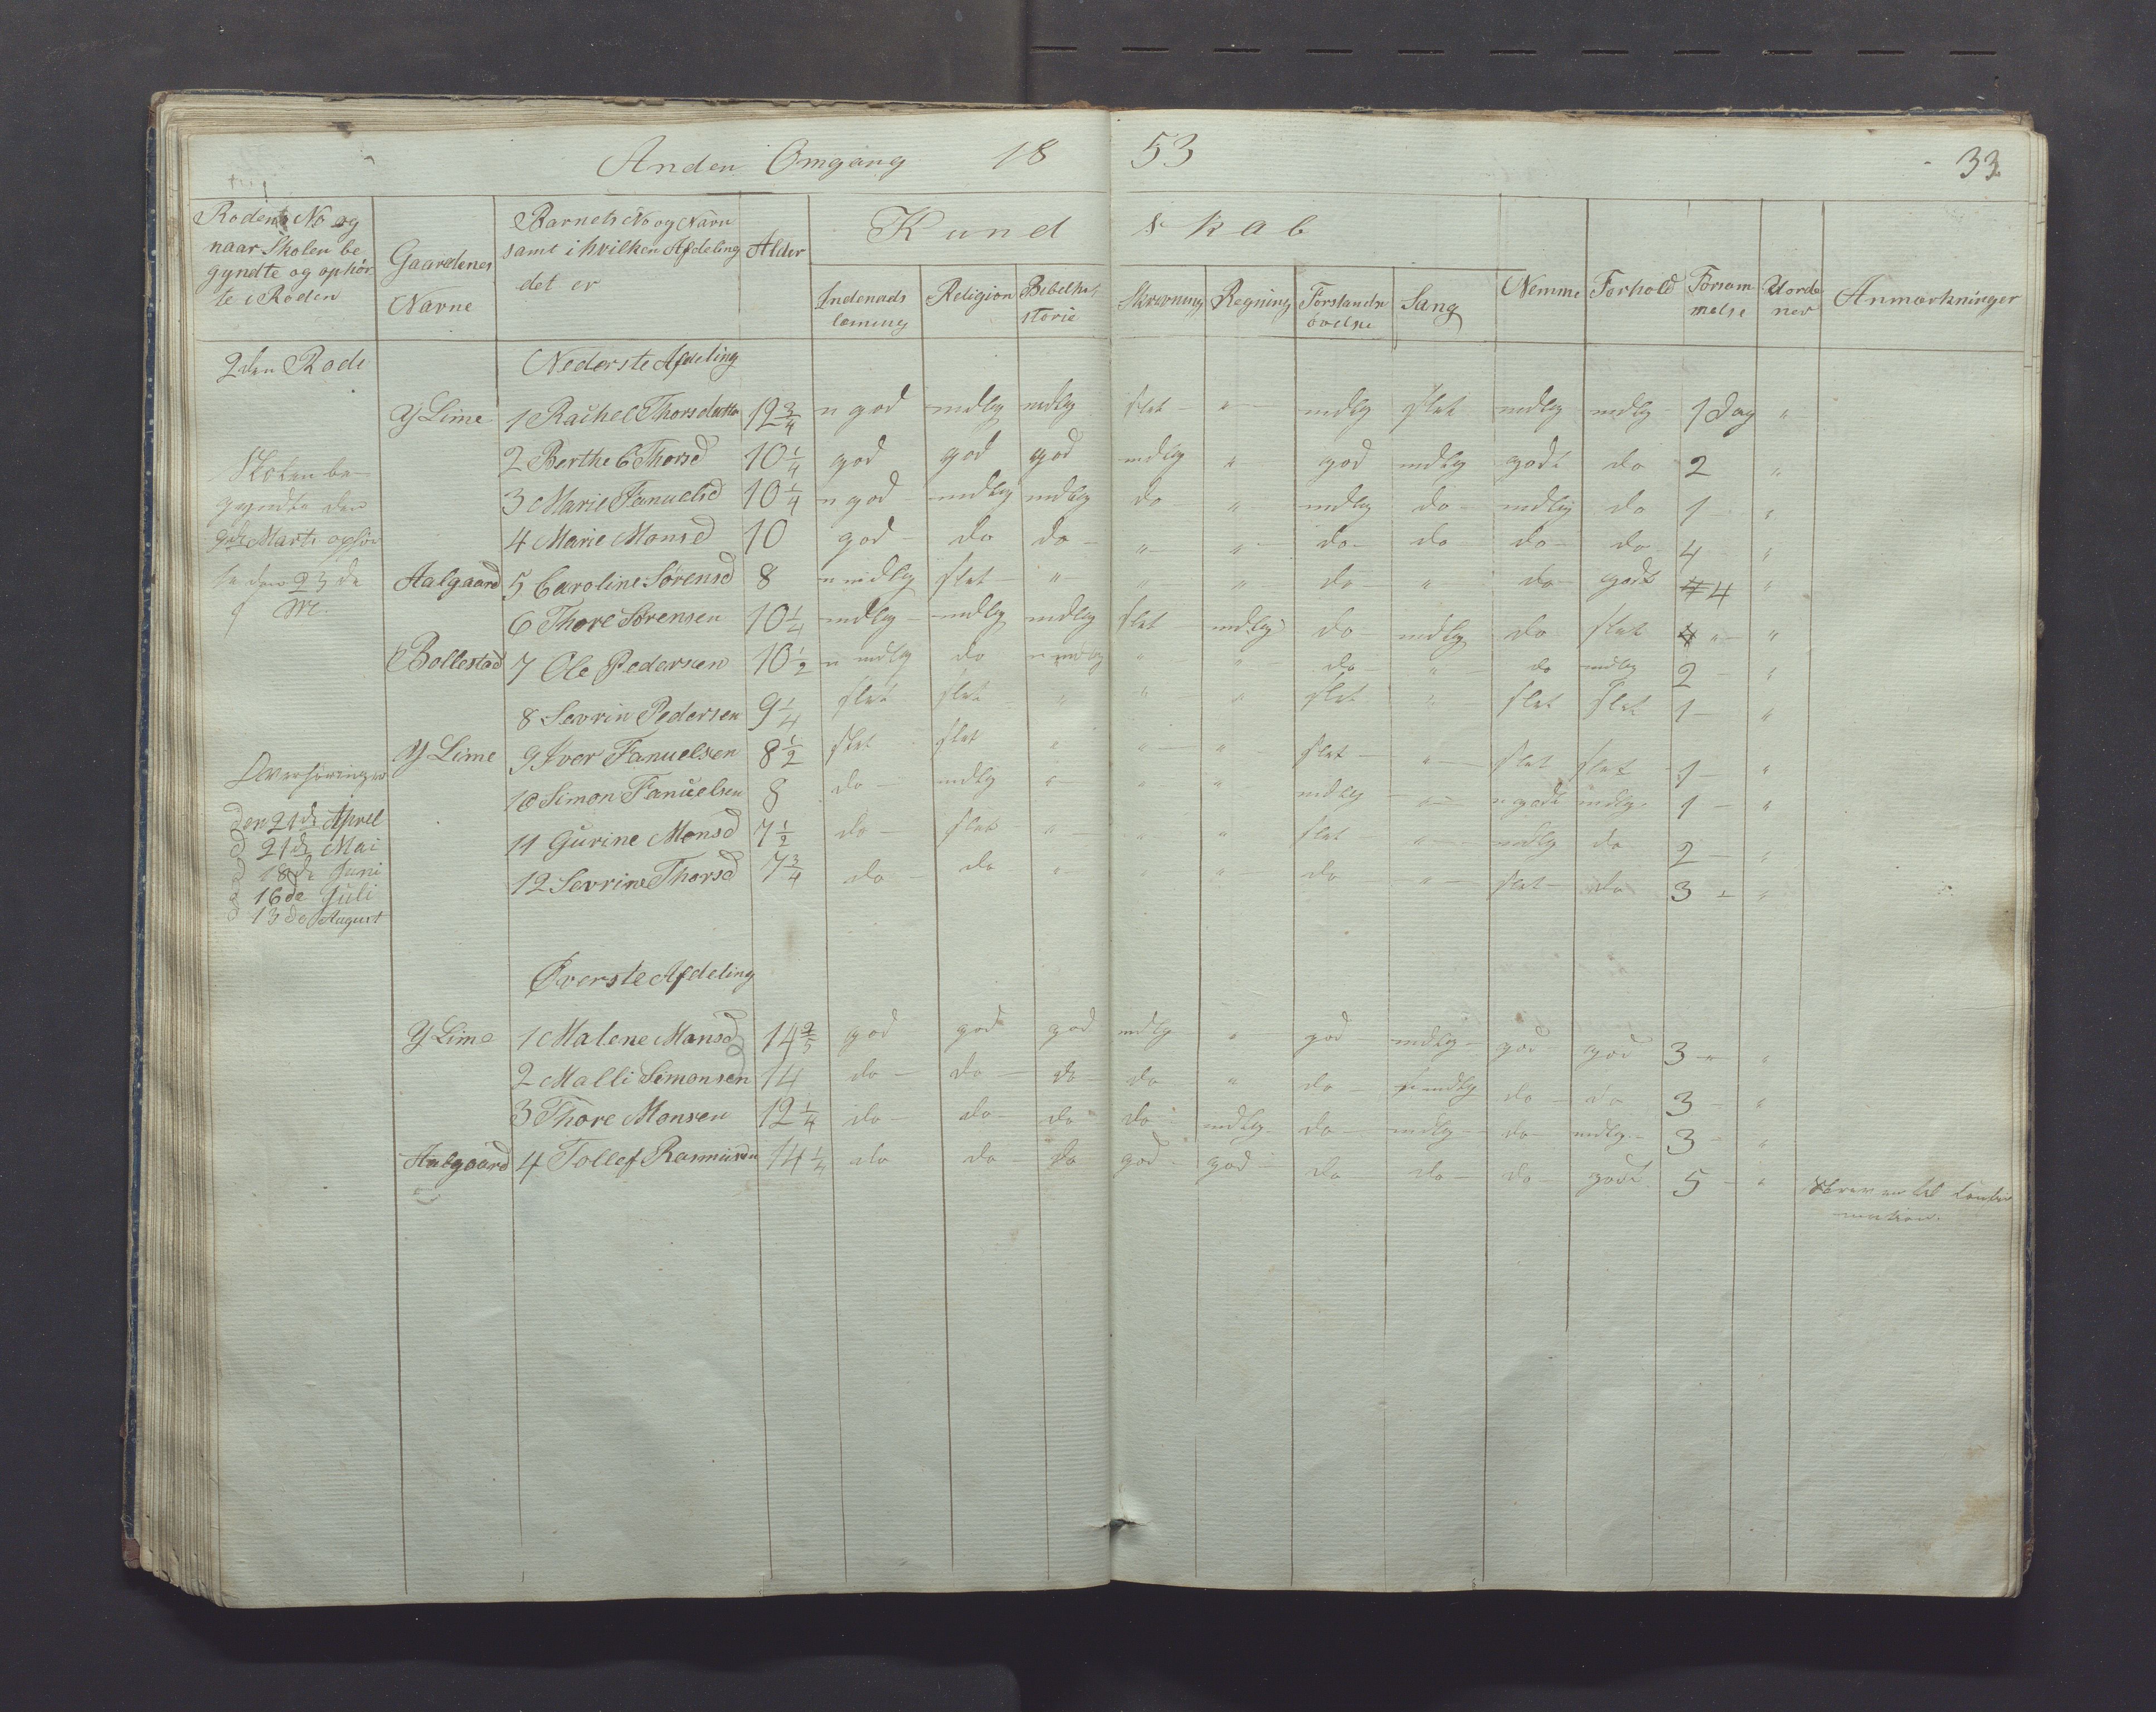 Anden Omgang 18 53 33
Rodens No og naar Skolen begyndte og ophørte i Roden
Gaardenes Navne
Barnets No og Navn samt i hvilken Afdeling det er
Alder
Kund skab
Indenads læsning
Religion
Bibelhistorie
Skrevning
Regning
Forstands øvelse
Sang
Nemme
Forhold
Forsømmelse
Uordener
Anmærkninger
2den Rode Nederste Afdeling
Y Lime 1 Rachel Thorsdatter 12 3/4 n god mdlg mdlg slet " mdlg slet mdlg mdlg 1 Dag "
2 Berthe C Thorsd 10 1/4 god god god mdlg " god mdlg godt do 2 "
Skolen be-
3 Marie Fanuelsd 10 1/4 n god mdlg mdlg do " mdlg do mdlg do 1 "
gyndte den
4 Marie Monsd 10 god do do " " do do do do 4 "
Marts ophør
Aalgaard 5 Caroline Sørensd 8 n mdlg slet " " " do " do godt 4 "
te den 23de
6 Thore Sørensen 10 1/4 mdlg mdlg mdlg slet mdlg do mdlg do slet " "
Bollestad 7 Ole Pedersen 10 1/2 n mdlg do n mdlg " " do " do mdlg 2 "
8 Sevrin Pedersen 9 1/4 slet slet " " " slet " slet slet 1 "
Y Lime 9 Iver Fanuelsen 8 1/2 slet slet " " " slet " slet slet 1 "
Overhøringer
10 Simon Fanuelsen 8 do mdlg " " " mdlg " n godt mdlg 1 "
den 21de April
11 Gurine Monsd 7 1/2 do slet " " " slet " mdlg do 2 "
21de Mai
18de Juni
12 Sevrine Thorsd 7 3/4 do do " " " do " slet do 3 "
16de Juli
13de August
Øverste Afdeling
Y Lime 1 Malene Monsd 14 2/3 god god god mdlg " god mdlg god god 3 "
2 Malli Simonsen 14 do do do do " do mdlg do do 3 "
3 Thore Monsen 12 1/4 do do do do mdlg do mdlg do mdlg 3 "
Aalgaard 4 Tollef Rasmusen 14 1/4 do do do god god do do do godt 5 "
til Confir
mation.